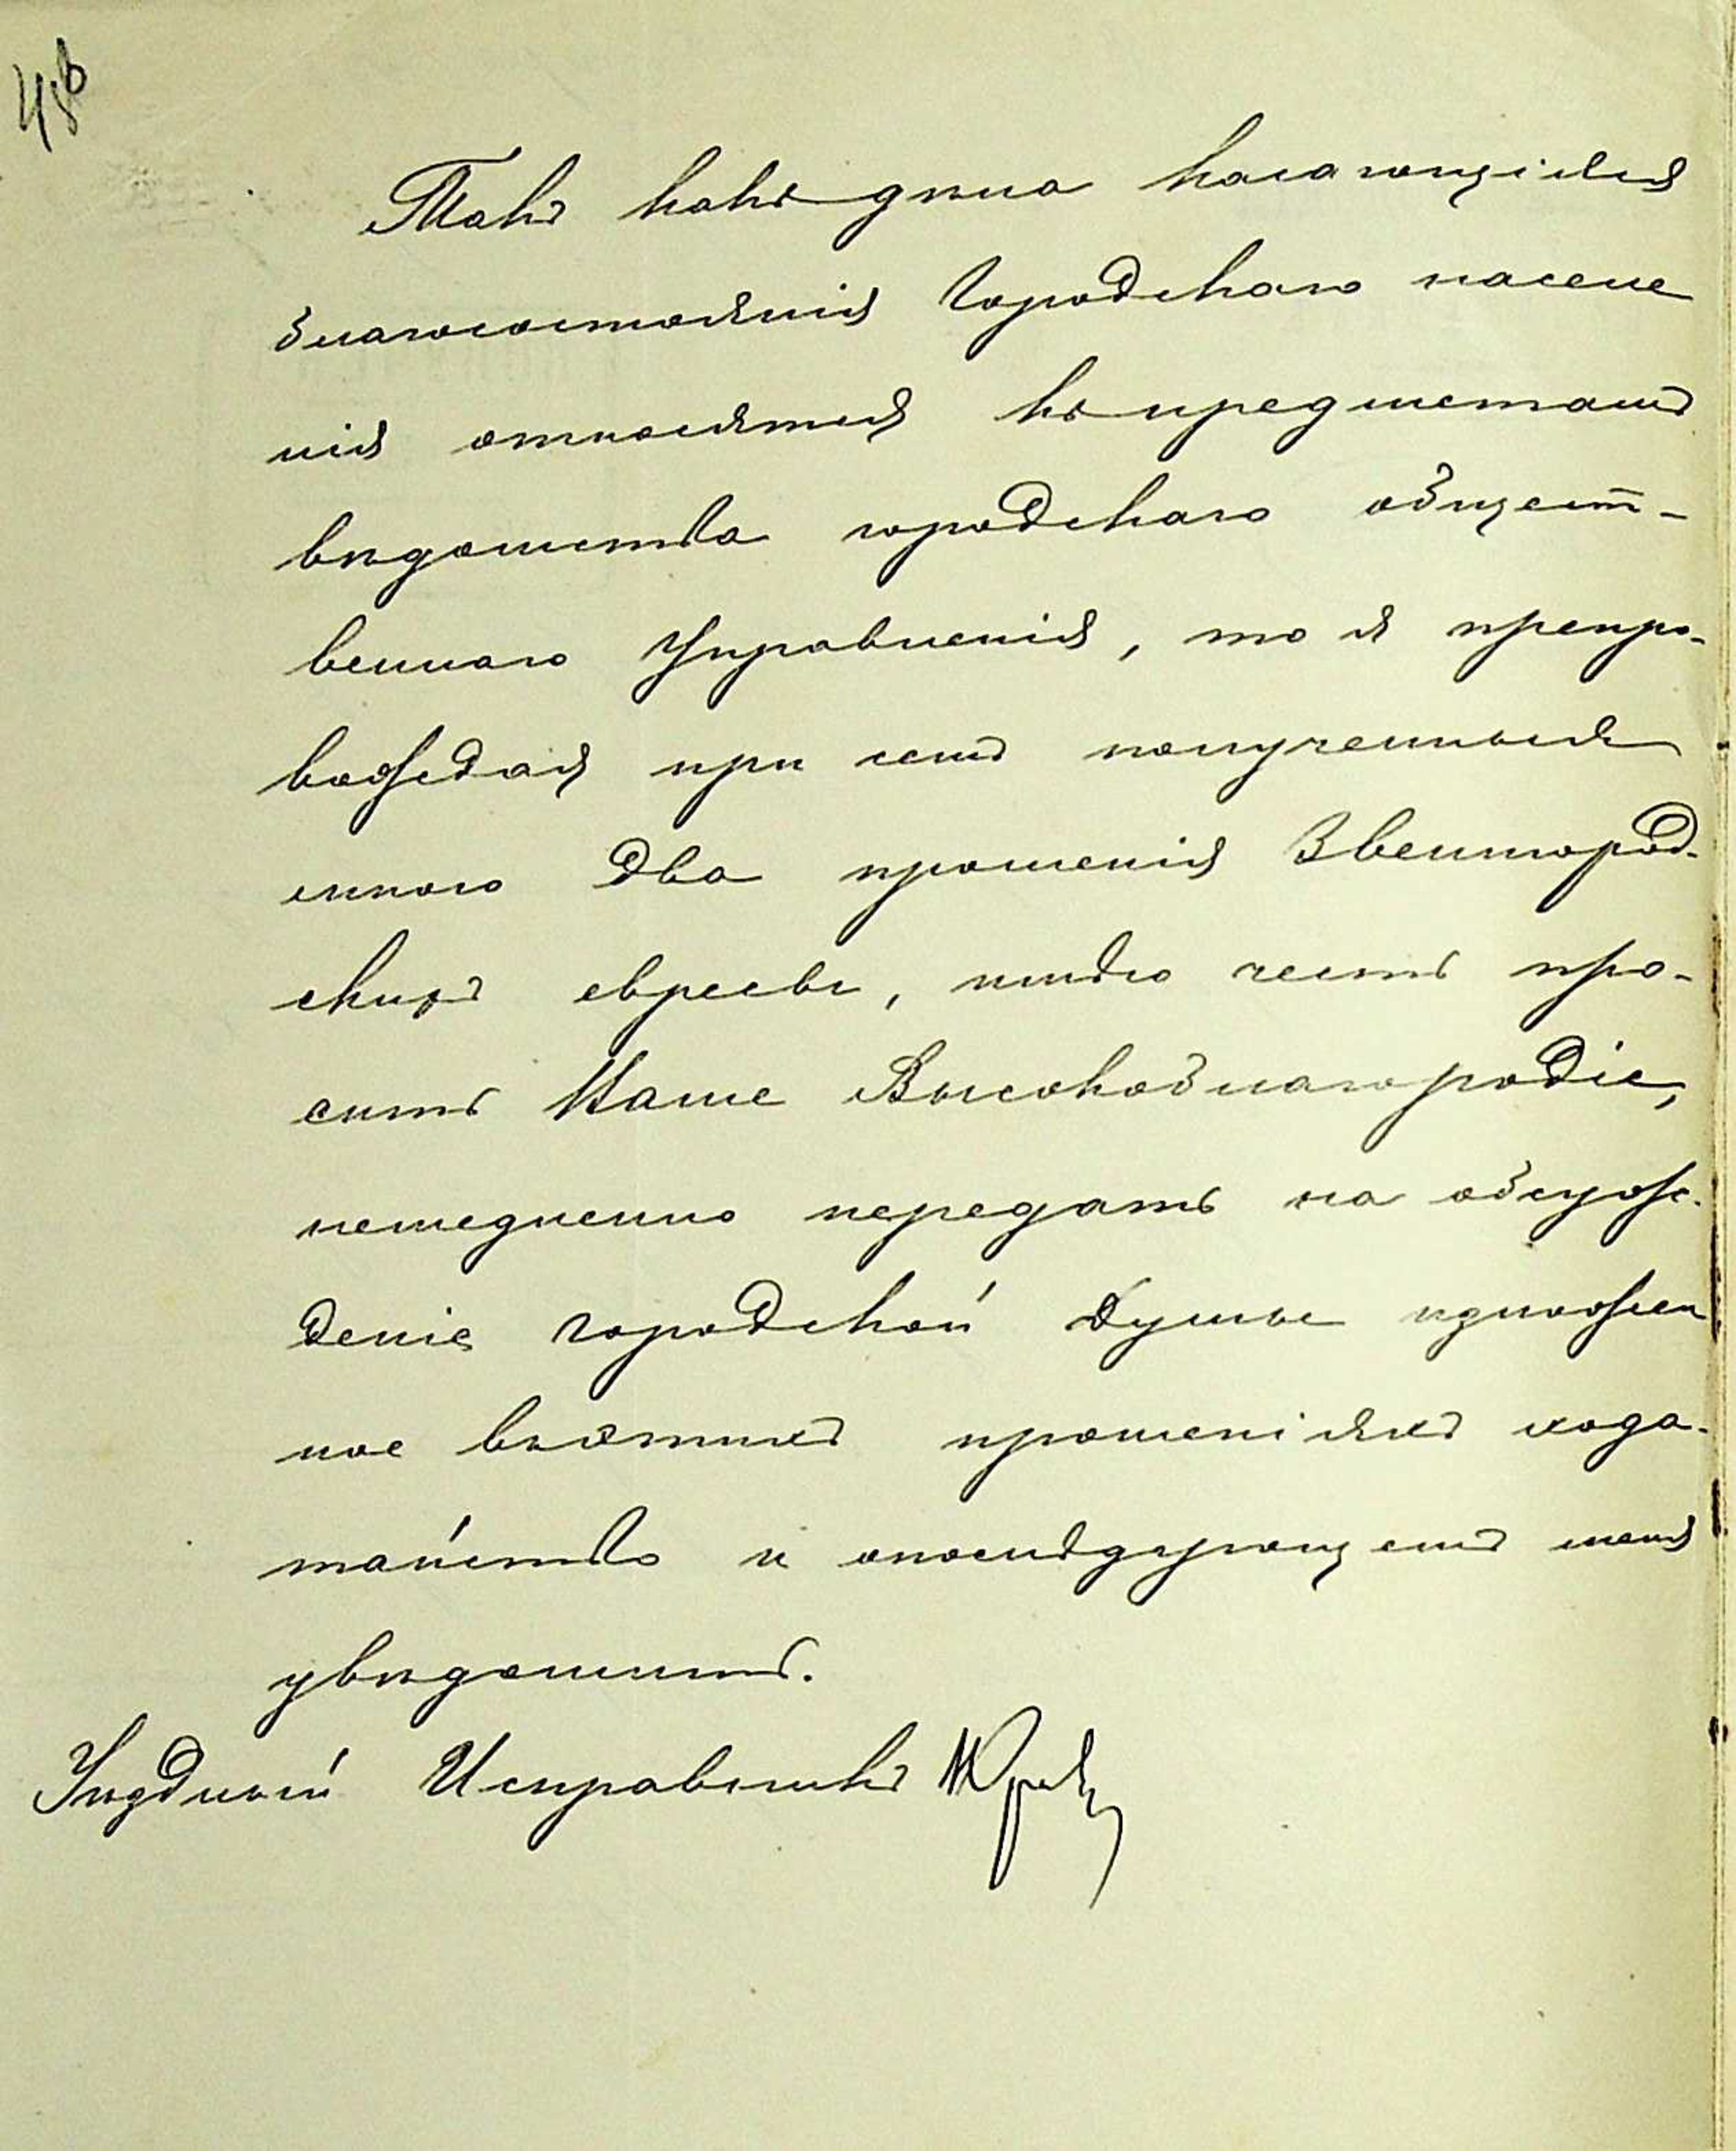 Такъ какъ дѣла касающіяся
благосостоянія Городскаго населе
нія относятся къ предметамъ
вѣдомства городскаго общест-
веннаго Управленія, то я препро-
вождая при семъ полученныя
мною два прошенія Звенигород-
скихъ евреевъ, имѣю честь про-
сить Ваше Высокоблагородіе,
немедленно передать на обсуж-
деніе городской Думы изложен
ное въ этихъ прошеніяхъ хода-
тайство и о послѣдующемъ меня
увѣдомить.
Уѣздный Исправникъ